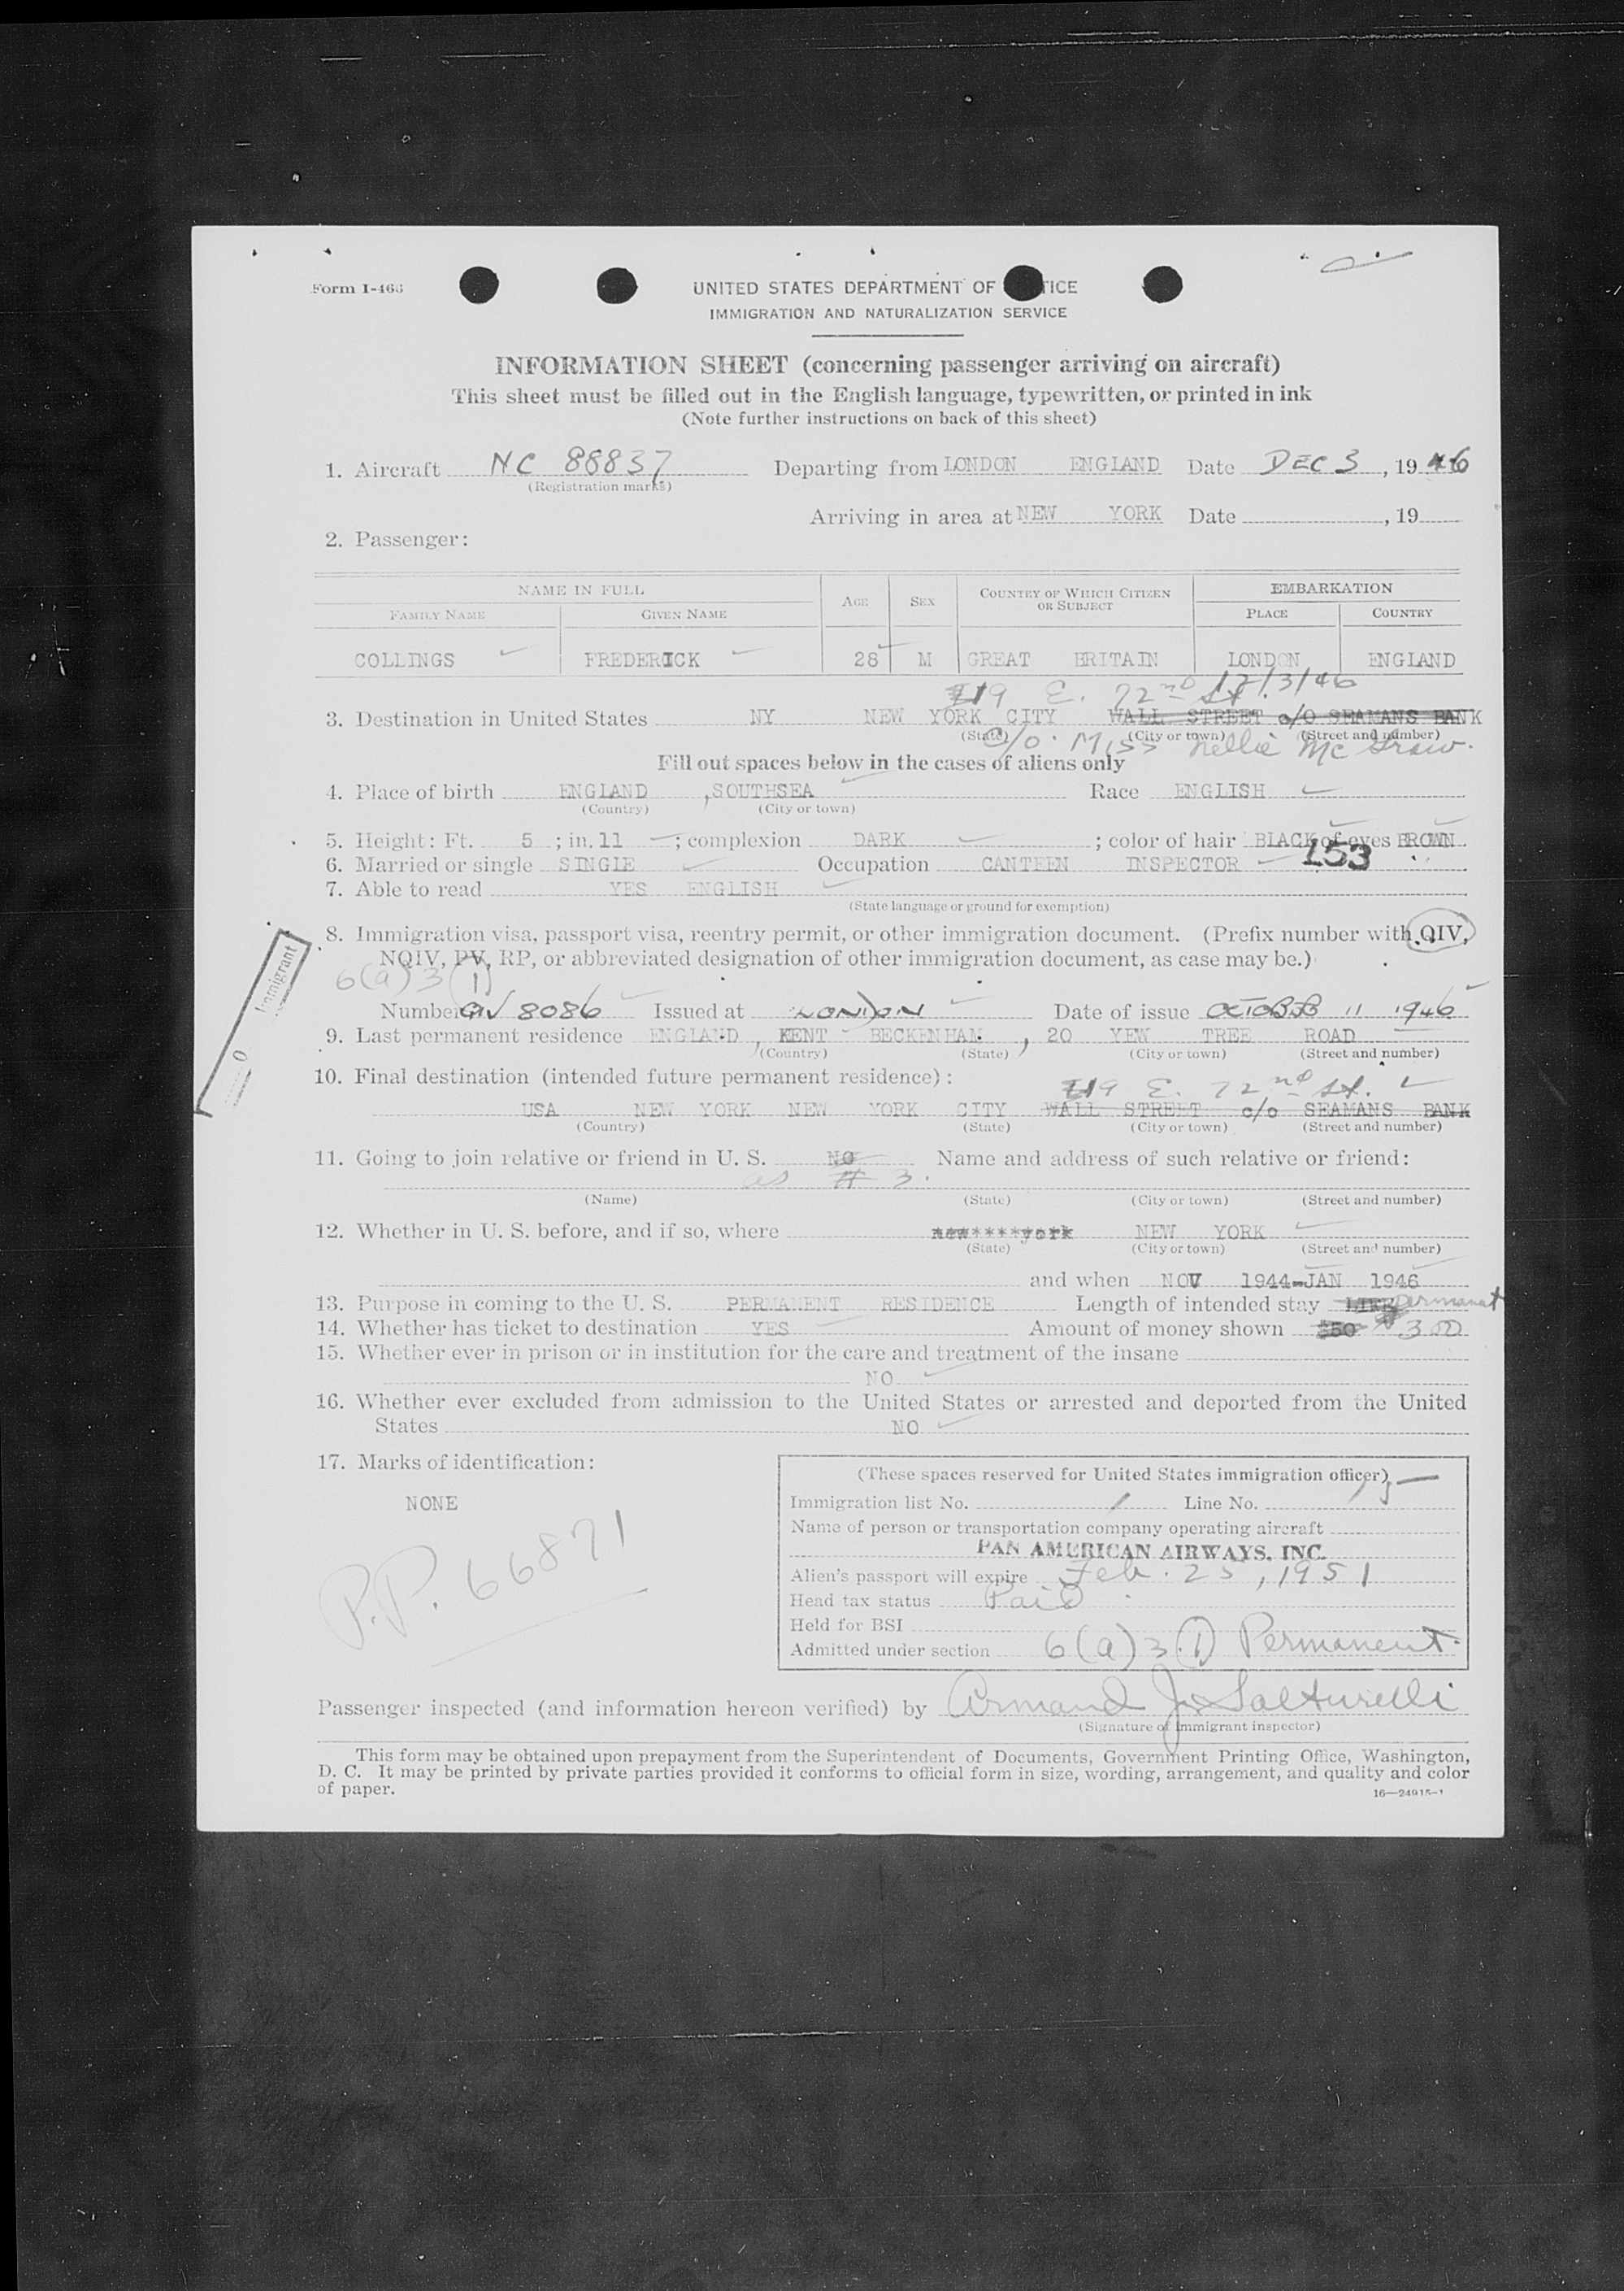 Form I-466
UNITED STATES DEPARTMENT OF TICE
IMMIGRATION AND NATURALIZATION SERVICE
INFORMATION SHEET (concerning passenger arriving on aircraft)
This sheet must be filled out in the English language, typewritten, or printed in ink
(Note further instructions on back of this sheet)
1. Aircraft NC 88837 Departing from LONDON ENGLAND Date DEC 3, 1946
(Registration marks)
Arriving in area at NEW YORK Date , 19
2. Passenger:
NAME IN FULL AGE SEX COUNTRY OF WHICH CITIZEN OR SUBJECT EMBARKATION
FAMILY NAME GIVEN NAME PLACE COUNTRY
COLLINGS FREDERICK 28 M GREAT BRITAIN LONDON ENGLAND
E. 72nd St. 12/3/46
3. Destination in United States NY NEW YORK CITY WALL STREET c/o SEAMANS BANK
(State) (City or town) (Street and number)
c/o Miss Nellie McGraw.
Fill out spaces below in the cases of aliens only
4. Place of birth ENGLAND , SOUTHSEA Race ENGLISH
(Country) (City or town)
5. Height: Ft. 5 ; in. 11 ; complexion DARK ; color of hair BLACK of eyes BROWN
6. Married or single SINGLE Occupation CANTEEN INSPECTOR 153
7. Able to read YES ENGLISH
(State language or ground for exemption)
8. Immigration visa, passport visa, reentry permit, or other immigration document. (Prefix number with QIV,
NQIV, PV, RP, or abbreviated designation of other immigration document, as case may be.)
6(a)3(1)
Immigrant
Number QIV 8086 Issued at LONDON Date of issue OCTOBER 11 1946
9. Last permanent residence ENGLAND , KENT BECKENHAM , 20 YEW TREE ROAD
(Country) (State) (City or town) (Street and number)
10. Final destination (intended future permanent residence):
E. 72nd St.
USA NEW YORK NEW YORK CITY WALL STREET c/o SEAMANS BANK
(Country) (State) (City or town) (Street and number)
11. Going to join relative or friend in U. S. NO Name and address of such relative or friend:
as # 3.
(Name) (State) (City or town) (Street and number)
12. Whether in U. S. before, and if so, where new****york NEW YORK
(State) (City or town) (Street and number)
and when NOV 1944-JAN 1946
13. Purpose in coming to the U. S. PERMANENT RESIDENCE Length of intended stay LIFE Permanent
14. Whether has ticket to destination YES Amount of money shown £50 300
15. Whether ever in prison or in institution for the care and treatment of the insane
NO
16. Whether ever excluded from admission to the United States or arrested and deported from the United
States NO
17. Marks of identification:
NONE
P.P. 66871
(These spaces reserved for United States immigration officer)
Immigration list No. 1 Line No.
Name of person or transportation company operating aircraft
PAN AMERICAN AIRWAYS, INC.
Alien's passport will expire Feb. 25, 1951
Head tax status Paid
Held for BSI
Admitted under section 6(a)3(1) Permanent.
Passenger inspected (and information hereon verified) by Armand J. Salturelli
(Signature of immigrant inspector)
This form may be obtained upon prepayment from the Superintendent of Documents, Government Printing Office, Washington,
D. C. It may be printed by private parties provided it conforms to official form in size, wording, arrangement, and quality and color
of paper.
16—24915-1